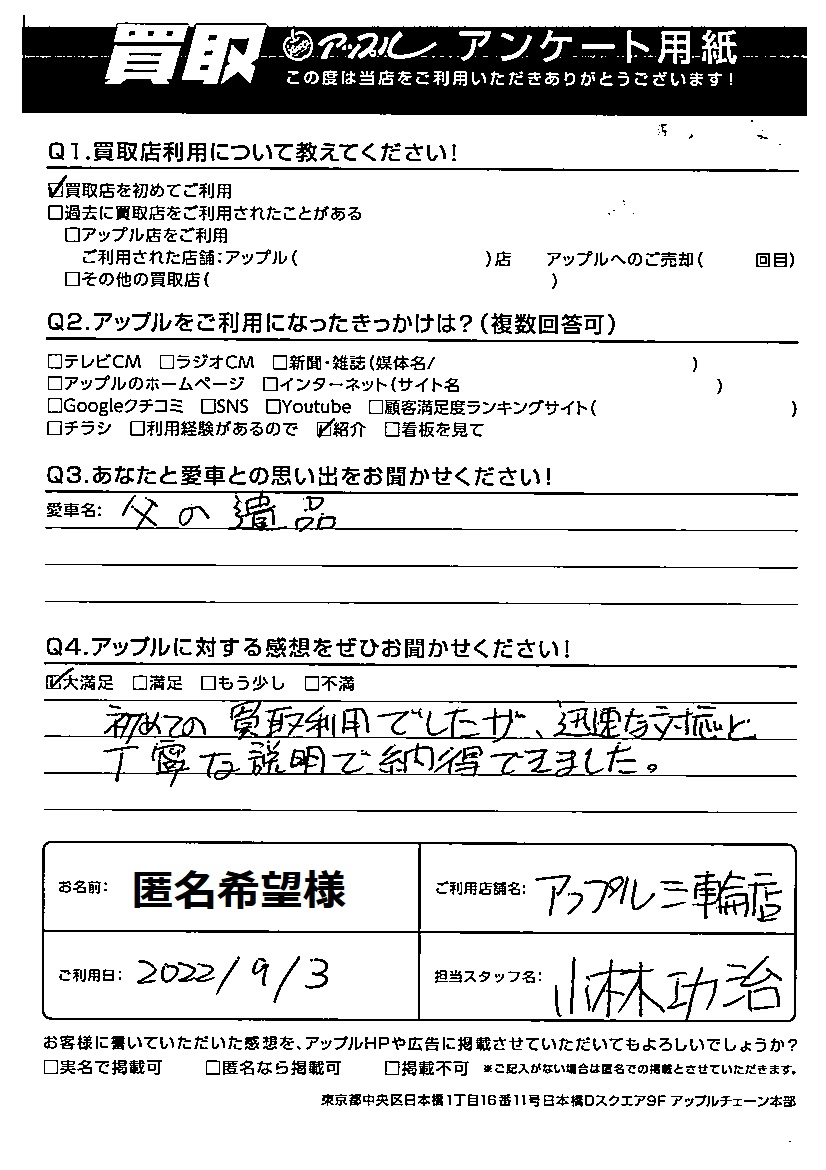 買取 アップル アンケート用紙
この度は当店をご利用いただきありがとうございます!
Q1.買取店利用について教えてください!
☑買取店を初めてご利用
□過去に買取店をご利用されたことがある
□アップル店をご利用
ご利用された店舗:アップル( )店 アップルへのご売却( 回目)
□その他の買取店( )
Q2.アップルをご利用になったきっかけは?(複数回答可)
□テレビCM □ラジオCM □新聞・雑誌(媒体名/ )
□アップルのホームページ □インターネット(サイト名 )
□Googleクチコミ □SNS □Youtube □顧客満足度ランキングサイト( )
□チラシ □利用経験があるので ☑紹介 □看板を見て
Q3.あなたと愛車との思い出をお聞かせください!
愛車名: 父の遺品
Q4.アップルに対する感想をぜひお聞かせください!
☑大満足 □満足 □もう少し □不満
初めての買取利用でしたが、迅速な対応と
丁寧な説明で納得できました。
お名前: 匿名希望様 ご利用店舗名: アップル三輪店
ご利用日: 2022/9/3 担当スタッフ名: 小林功治
お客様に書いていただいた感想を、アップルHPや広告に掲載させていただいてもよろしいでしょうか?
□実名で掲載可 □匿名なら掲載可 □掲載不可 ※ご記入がない場合は匿名での掲載とさせていただきます。
東京都中央区日本橋1丁目16番11号日本橋Dスクエア9F アップルチェーン本部